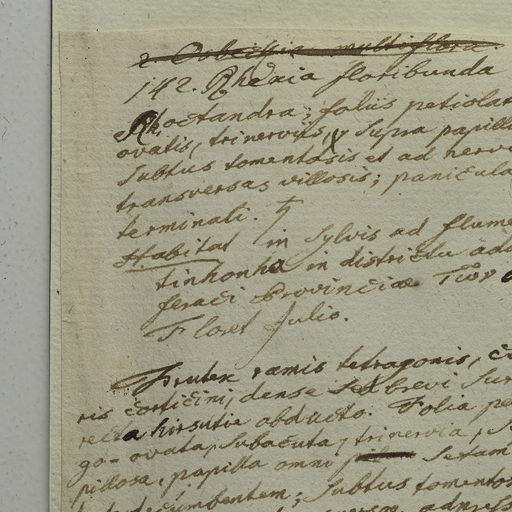 2 Osbeckia multiflora.
142. Rhexia floribunda
Rh. octandra; foliis petiolat
ovatis, trinerviis, supra papillo
subtus tomentosis et ad nervo
transversas villosis; panicula
terminali. ♄
Habitat in sylvis ad flume
tinhonha in districtu ada
feraci Provinciæ
Floret Julio.
Frutex ramis tetragonis, co
ris corticini, dense sed brevi sur
recta hirsutie obducto. Folia pe
go-ovata, subacuta, trinervia, s
pillosa, papilla omni setam
decumbentem; subtus tomentos
adpress